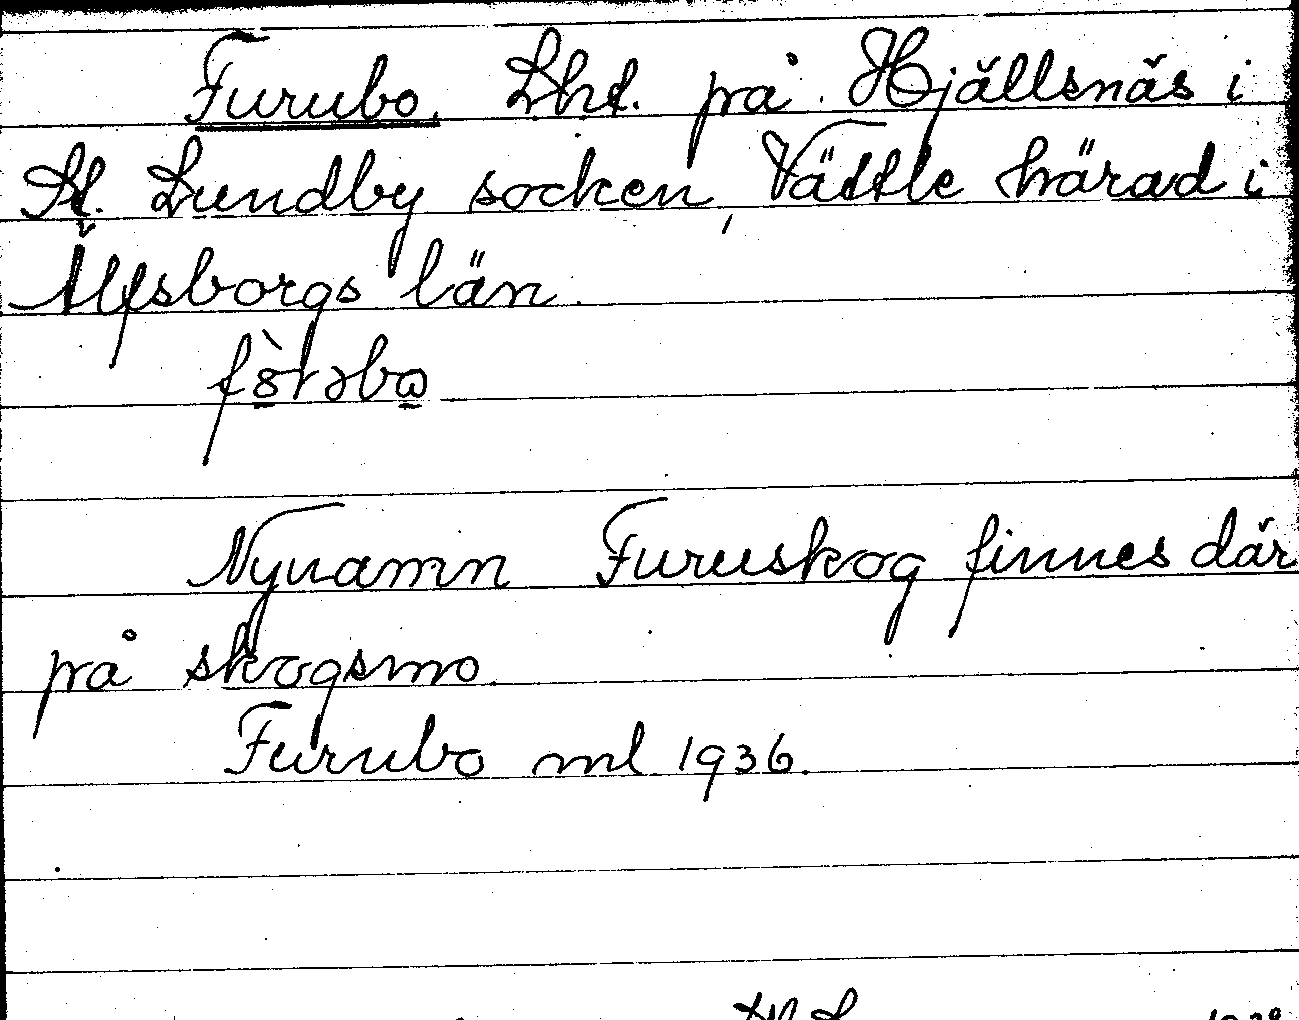 Furubo. Lht. på Hjällsnäs i
St. Lundby socken, Vättle härad i
Älfsborgs län.
Nynamn Furuskog finnes där
på skogsmo.
Furubo ml 1936.